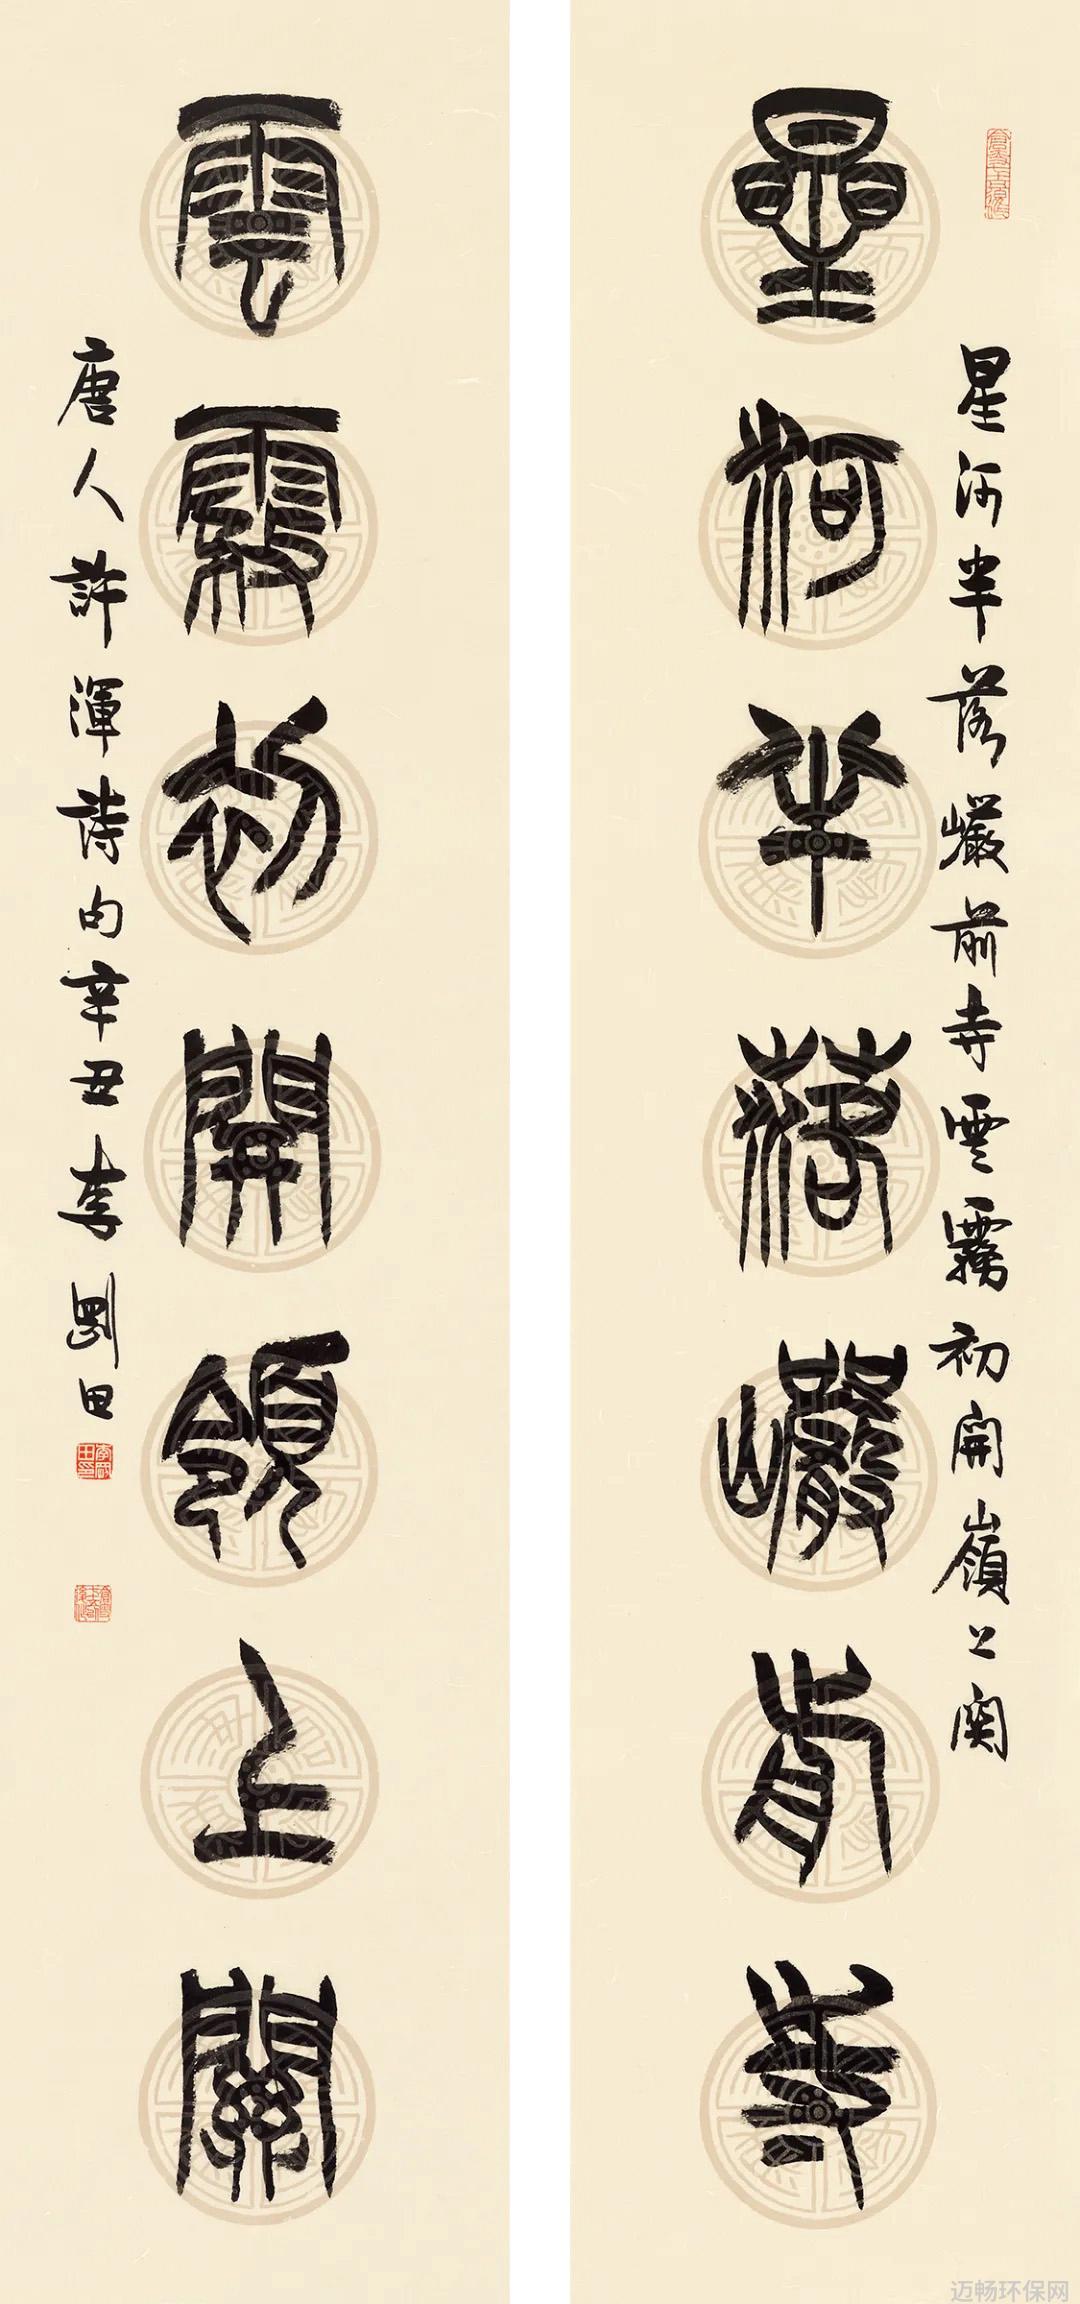 星河半落巖前寺
星河半落巖前寺雲霧初開嶺上關
雲霧初開領上關
唐人許渾詩句辛丑李剛田
迈畅环保网